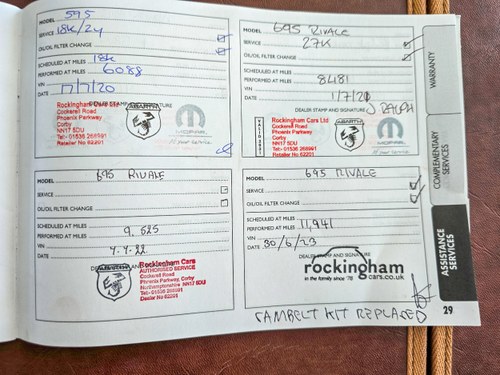 MODEL 595
SERVICE 18k/24
OIL/OIL FILTER CHANGE
SCHEDULED AT MILES 18k
PERFORMED AT MILES 6088
VIN
DATE
DEALER STAMP AND SIGNATURE
Rockingham Cars Ltd
Cockerell Road
Phoenix Parkway
Corby
NN17 5DU
Tel:- 01536 268991
Retailer No 62201
ABARTH
MOPAR
MODEL 695 RIVALE
SERVICE 27K
OIL/OIL FILTER CHANGE
SCHEDULED AT MILES
PERFORMED AT MILES 8481
VIN
DATE
DEALER STAMP AND SIGNATURE J RALPH
Rockingham Cars Ltd
Cockerell Road
Phoenix Parkway
Corby
NN17 5DU
Tel:- 01536 268991
Retailer No 62201
ABARTH
MOPAR
MODEL 695 RIVALE
SERVICE
OIL/OIL FILTER CHANGE
SCHEDULED AT MILES
PERFORMED AT MILES 9,625
VIN
DATE 7.7.22
ABARTH
Rockingham Cars
AUTHORISED SERVICE
Cockerell Road
Phoenix Parkway, Corby
Northamptonshire NN17 5DU
Tel:- 01536 268991
Dealer No 62201
MODEL 695 RIVALE
SERVICE
OIL/OIL FILTER CHANGE
SCHEDULED AT MILES
PERFORMED AT MILES 11,941
VIN
DATE 30/6/23
DEALER STAMP AND SIGNATURE
rockingham
cars.co.uk
in the family since '78
CAMBELT KIT REPLACED
WARRANTY
COMPLEMENTARY
SERVICES
ASSISTANCE
SERVICES
29